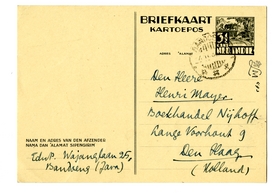 BRIEFKAART
KARTOEPOS
3½
NED. INDIE
ADRES
ALAMAT
Den Heere
Henri Mayer
Boekhandel Nijhoff
Lange Voorhout 9
Den Haag
(Holland)
NAAM EN ADRES VAN DEN AFZENDER
NAMA DAN ALAMAT SIPENGIRIM
Wajanglaan 25,
Bandoeng (Java)